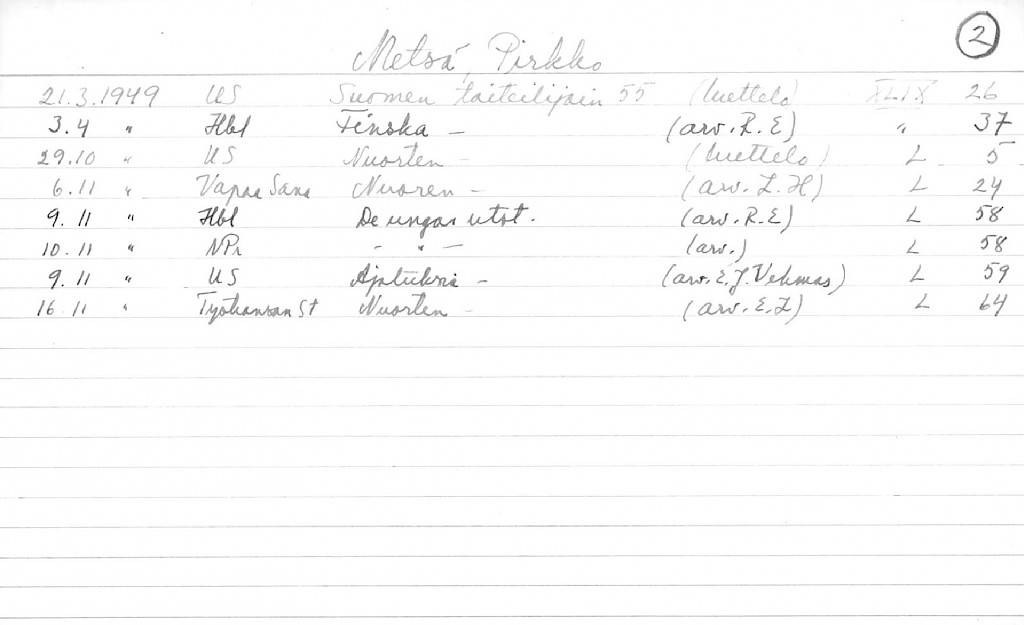 2
Metsä, Pirkko
21.3.1949 US Suomen taiteilijain 55 (luettelo) XLIX 26
3.4 " Hbl Finska – (arv. R.E) " 37
29.10 " US Nuorten – (luettelo) L 5
6.11 " Vapaa Sana Nuoren – (arv. L.H) L 24
9.11 " Hbl De ungas utst. (arv. R.E) L 58
10.11 " NPr – " – (arv.) L 58
9.11 " US – (arv. E.J. Vehmas) L 59
16.11 " Työkansan St Nuorten – (arv. E.L) L 64